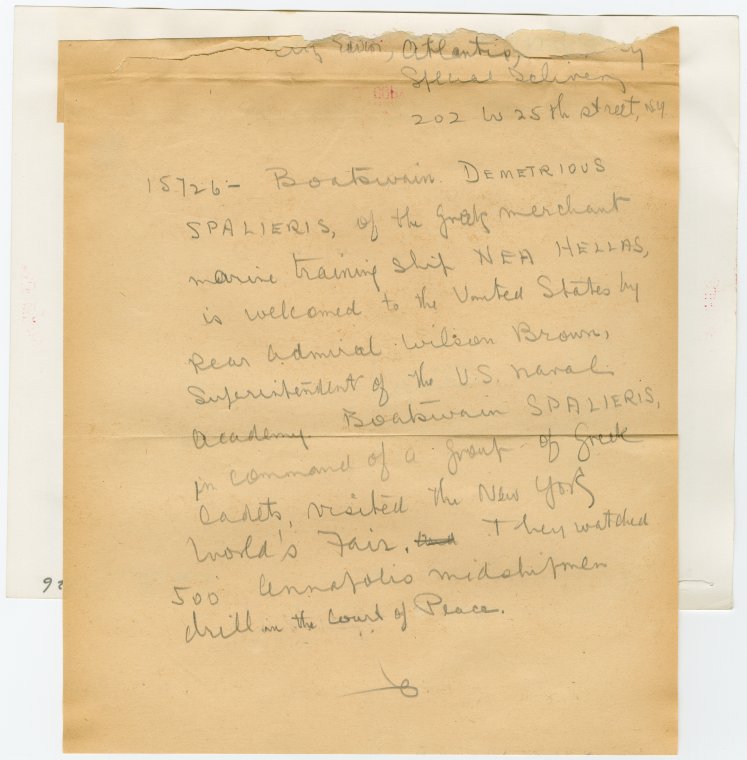 City Editor, Atlantis,
Special Delivery
202 W 25th Street, NY.
15726- Boatswain DEMETRIOUS
SPALIERIS, of the Greek merchant
marine training ship NEA HELLAS,
is welcomed to the United States by
Rear Admiral Wilson Brown,
Superintendent of the U.S. Naval
Academy. Boatswain SPALIERIS,
in command of a group of Greek
Cadets, visited the New York
World's Fair. They watched
500 Annapolis midshipmen
drill in the Court of Peace.